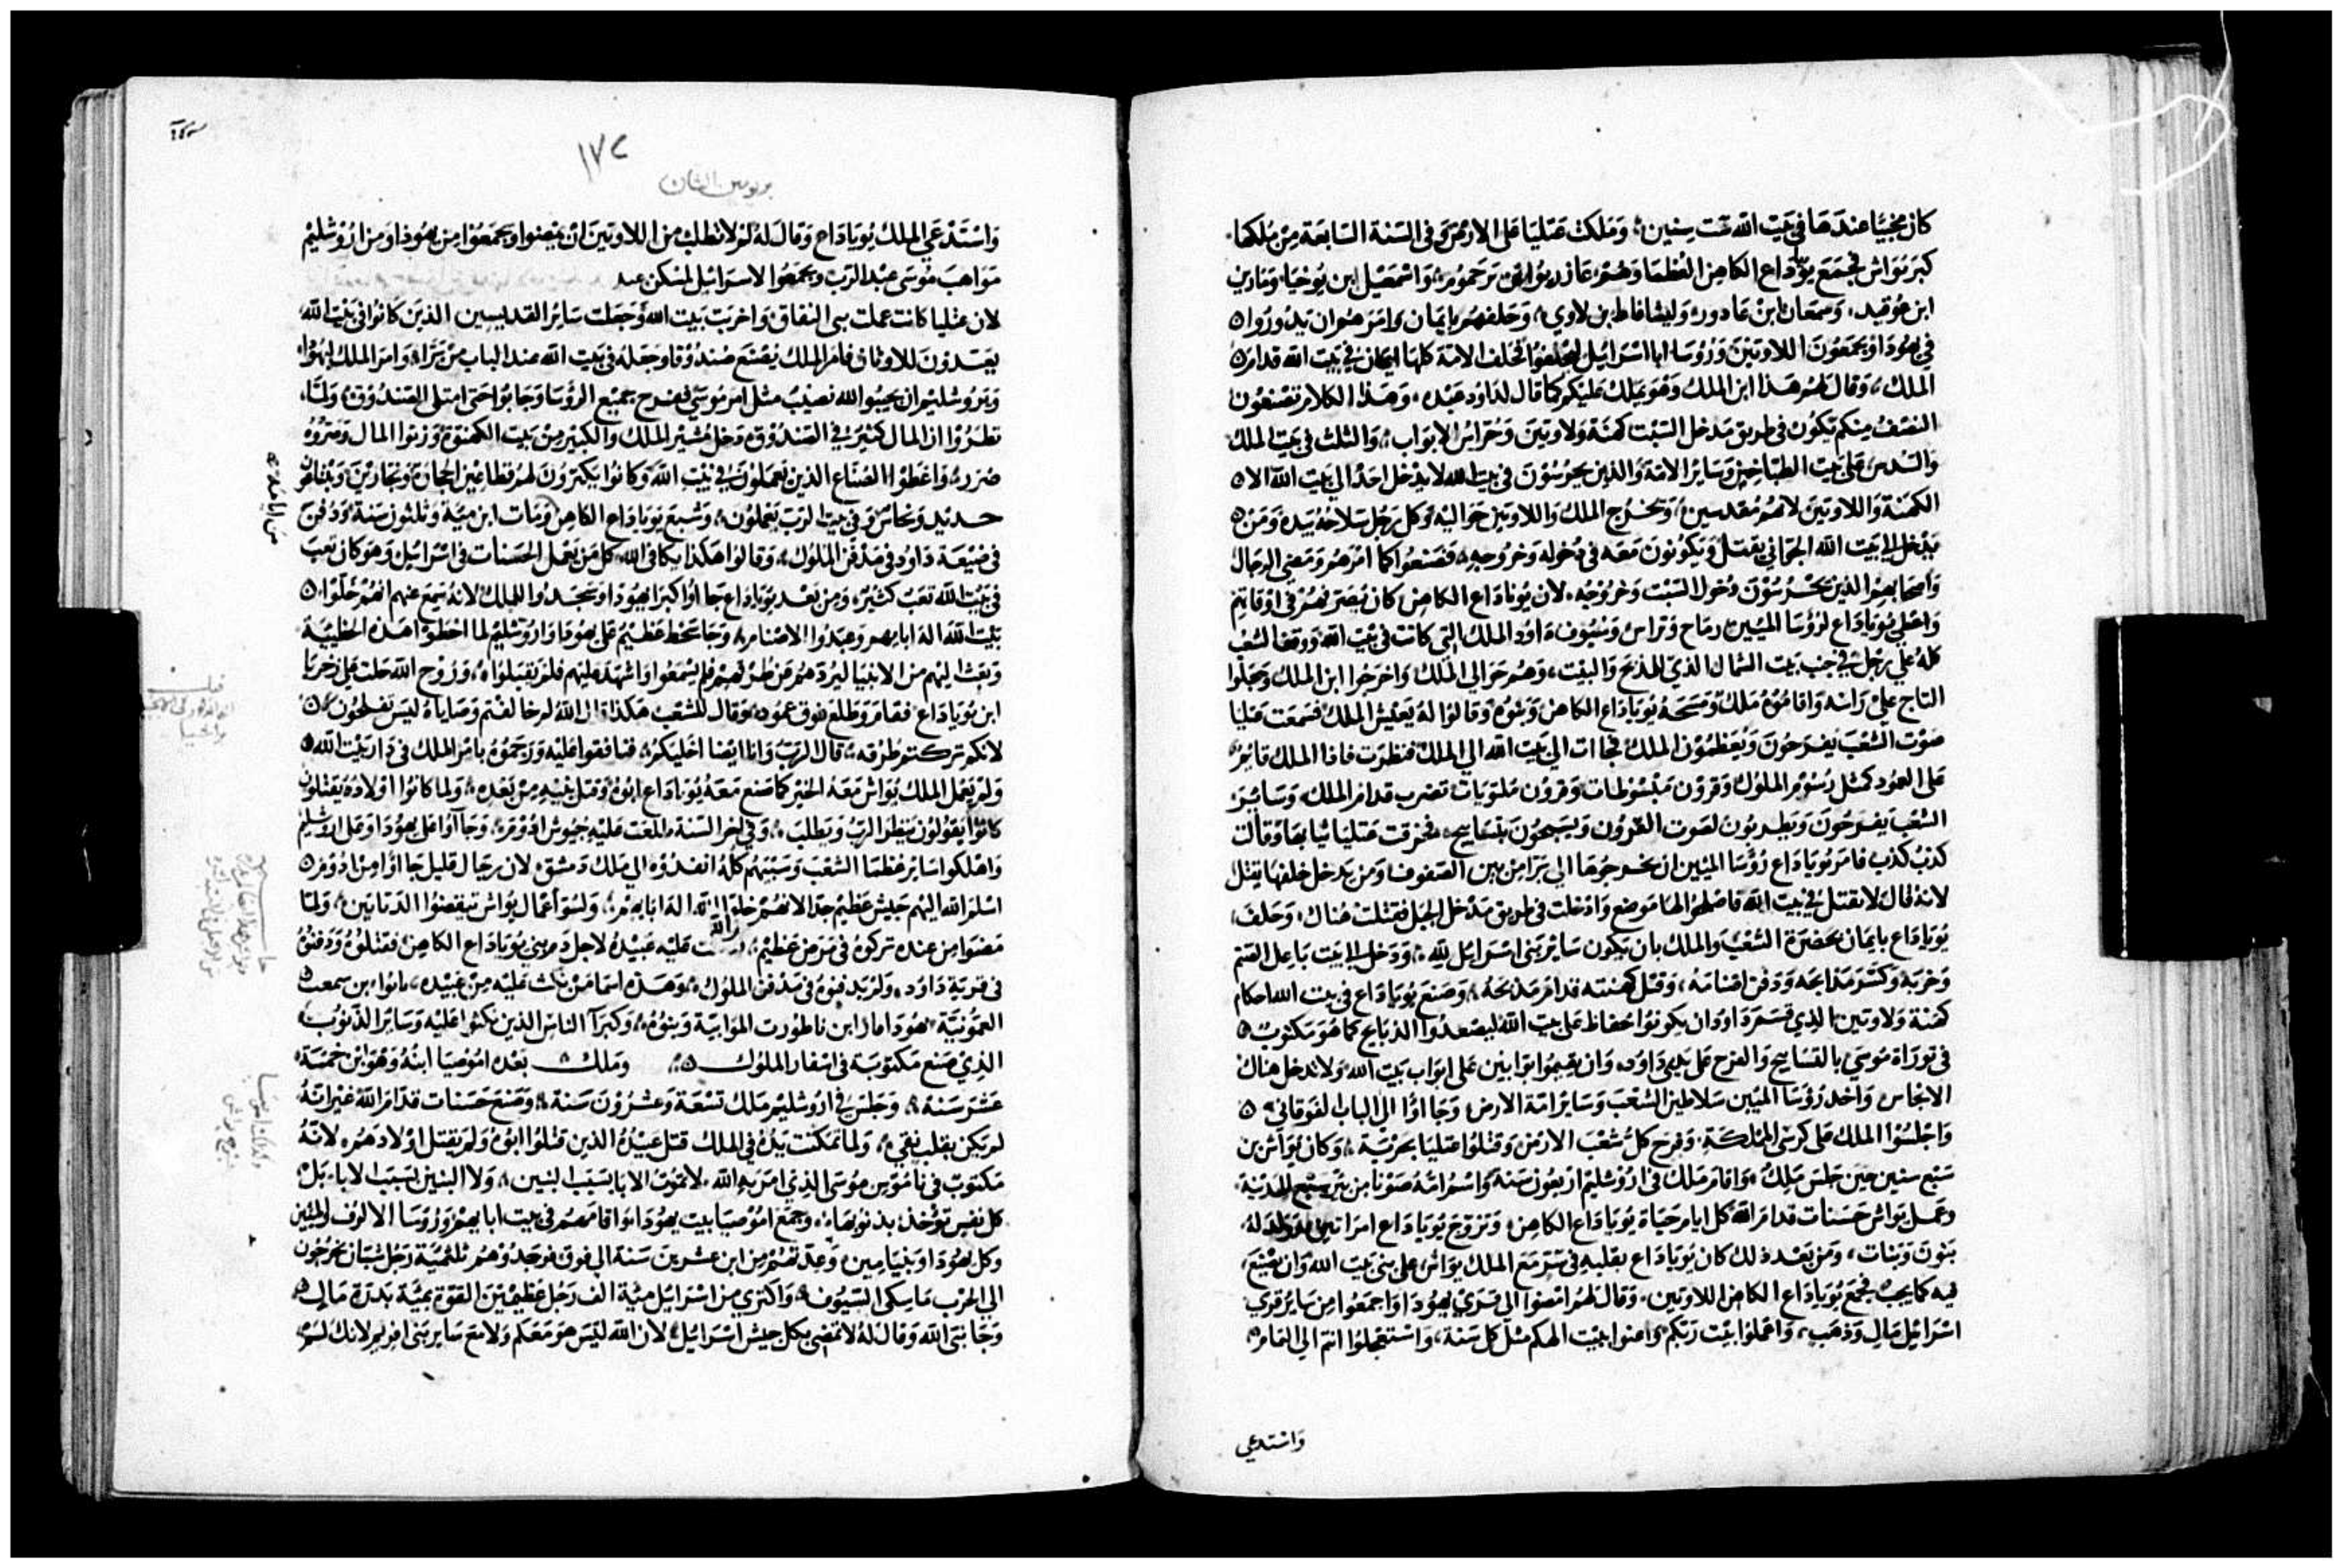 كان مخبيًا عندها في بيت الله ست سنين؛ وملكت عتليا على الارض وفي السنة السابعة من ملكها
كبر يواش فجمع يوياداع الكاهن العظما وهم؛ عازريو ابن يرحموم؛ واسمعيل ابن يوحنا
ابن عوبيد، ومعان ابن عادور وليشافاط بن لاوي؛ وحلفهم بايمان وامرهم ان يدوروا
في يهودا ويجمعون اللاويين وروسا ابا اسرائيل ليحلفوا فحلف الامة كلها ايمان في بيت الله قدام
الملك؛ وقال لهم هذا ابن الملك وهو يملك عليكم كما قال لداود عبده، وهذا الكلام تصنعون
النصف منكم يكون في طريق مدخل السبت كهنة ولاويين وحراس الابواب؛ والثلث في بيت الملك
والسدس على بيت الطباخين وساير الامة والذين يحرسون في بيت الله لا يدخل احد الي بيت الله الا
الكهنة واللاويين لانهم مقدسين؛ ويخرج الملك واللاويين حواليه وكل رجل سلاحه بيده ومن
يدخل الي بيت الله الجواني يقتل ويكونون معه في دخوله وخروجه؛ فصنعوا كما امرهم ومضى الرجال
واصحابهم الذين يحرسون دخول السبت وخروجه، لان يوياداع الكاهن كان يصرفهم في اوقاتهم
واعطى يوياداع لروسا الميين رماح وتراس وسيوف داود الملك التي كانت في بيت الله ووقف الشعب
كله على رجل في جنب بيت الشمال الذي للمذبح والبيت، وهم حوالي الملك واخرجوا ابن الملك وجعلوا
التاج علي راسه واقاموه ملك ومسحه يوياداع الكاهن وبنوه وقالوا له يعيش الملك فسمعت عتليا
صوت الشعب يفرحون ويعظمون الملك فجاات الي بيت الله الي الملك فنظرت فاذا الملك قايم
على العمود كمثل رسوم الملوك وقرون مبسوطات وقرون ملتويات تضرب قدام الملك، وساير
الشعب يفرحون ويطربون لصوت القرون ويسبحون بتسابيح، فخرقت عتليا ثيابها وقالت
كذب كذب فامر يوياداع روسا الميين ان يخرجوها الي برا من بين الصفوف ومن يدخل خلفها يقتل
لانه قال لا تقتل في بيت الله فاصلحوا لها موضع وادخلت في طريق مدخل الخيل فقتلت هناك، وحلف
يوياداع بايمان بحضرة الشعب والملك بان يكون ساير بني اسرائيل لله؛ ودخل الي بيت باعل الصنم
وخربه وكسر مذابحه ودفن اصنامه؛ وقتل كهنته قدام مذبحه؛ وصنع يوياداع في بيت الله احكام
كهنة ولاويين الذي قسم داود ان يكونوا حفاظ على بيت الله ليصعدوا الذبايح كما هو مكتوب
في توراة موسى بالتسابيح والفرح على يدي داود، وان يقيموا بوابين على ابواب بيت الله ولا يدخل هناك
الانجاس واخد روسا الميين سلاطين الشعب وساير امة الارض وجاووا الى الباب الفوقاني
واجلسوا الملك على كرسي المملكة، وفرح كل شعب الارض وقتلوا عتليا بحربة؛ وكان يواش بن
سبع سنين حين جلس ملك، واقام ملك في اورشليم اربعون سنة واسم امه صونا من بير سبع المدينة
وعمل يواش حسنات قدام الله كل ايام حياة يوياداع الكاهن؛ وتزوج يوياداع امراتين وولد له
بنون وبنات، ومن بعد ذلك كان يوياداع بقلبه في سر مع الملك يواش على بني بيت الله وان يصنع
فيه كما يجب؛ فجمع يوياداع الكاهن اللاويين، وقال لهم امضوا الى قرى يهودا واجمعوا من ساير قرى
اسرائيل مال وذهب، واعملوا بيت ربكم وامنوا ببيت الهكم مثل كل سنة، واستعجلوا انتم الي التمام
واستدعي
١٧٢
بريومين الثاني
واستدعي الملك يوياداع وقال له لم لا تطلب من اللاويين ان يمضوا ويجمعوا من يهوذا ومن اورشليم
مواهب موسى عبد الرب ويجمعوا لاسرائيل لمسكن عبد
لان عتليا كانت عملت بني النفاق واخربت بيت الله وجعلت ساير القديسين الذين كانوا في بيت الله
يعبدون للاوثان فامر الملك يصنع صندوق وجعله في بيت الله عند الباب من برا؛ وامر الملك ليهودا
ويروشليم ان يجيبوا لله نصيب مثل امر موسي ففرح جميع الروسا وجابوا حتى امتلى الصندوق؛ ولما
نظروا ان المال كثير في الصندوق دخل مشير الملك والكبير من بيت الكهنة وزنوا المال وصروه
صرره واعطوا الصناع الذين يعملون في بيت الله وكانوا يكترون لهم قطاعين الحجارة ونجارين وبنايين
حديد ونحاس وفي بيت الرب يعملون؛ وشبع يوياداع الكاهن ومات ابن مية وثلثون سنة ودفن
في ضيعة داود في مدفن الملوك؛ وقالوا هكذا يكافي الله كل من يعمل الحسنات في اسرائيل وهو كان تعب
في بيت الله تعب كثير، ومن بعد يوياداع جاوا اكبرا يهودا وسجدوا للملك لانه سمع عنهم انهم خلوا
بيت الله اله ابايهم وعبدوا الاصنام؛ وجا سخط عظيم على يهودا واروشليم لما اخطوا هذه الخطية
وبعث اليهم من الانبيا ليردهم عن طرقهم فلم يسمعوا واشهد عليهم فلم يقبلوا، وروح الله حلت على زخريا
ابن يوياداع فقام وطلع فوق عمود وقال للشعب هكذا قال الله لم خالفتم وصاياه ليس تفلحون
لانكم تركتم طرقه؛ قال الرب وانا ايضا اخليكم؛ فنافقوا عليه ورجموه بامر الملك في دار بيت الله
ولم يعمل الملك يواش معه الخير كما صنع معه يوياداع ابوه وقتل بنيه من بعده؛ ولما كانوا اولاده يقتلون
كانوا يقولون ينظر الرب ويطلب؛ وفي اخر السنة طلعت عليه جيوش ادوم؛ وجاآوا على يهودا وعلى اروشليم
واهلكوا ساير عظما الشعب وسبيهم كله انفدوه الي ملك دمشق، لان رجال قليل جاووا من ادوم
اسلم الله اليهم جيش عظيم جدا لانهم خلوا الله اله ابايهم؛ ولسو اعمال يواش تنقضوا الديانين؛ ولما
مضوا من عنده تركوه في مرض عظيم؛ عليه عبيده لاجل دم بني يوياداع الكاهن فقتلوه ودفنوه
في قرية داود، ولم يدفنوه في مدفن الملوك؛ وهذه اسما من نكث عليه من عبيده، ابن سمعت
العمونية يهودا ابن ناطورت الموابية وبنوه؛ وكبرآ الناس الذين نكثوا عليه وساير الذنوب
الذي صنع مكتوبة في اسفار الملوك وملك بعده اموصيا ابنه وهو ابن خمسة
عشر سنة؛ وجلس في اروشليم ملك تسعة وعشرون سنة؛ وصنع حسنات قدام الله غير انه
لم يكن بقلب نقي؛ ولما تمكنت يده في الملك قتل عبيده الذين قتلوا ابوه ولم يقتل اولادهم، لانه
مكتوب في ناموس موسى الذي امر به الله، لا تموت الابا بسبب البنين؛ ولا البنين بسبب الابا، بل
كل نفس تؤخذ بذنوبها؛ وجمع اموصيا بيت يهودا واقامهم في بيت ابايهم وروسا الالوف والميين
وكل يهودا وبنيامين؛ وعد تهم من ابن عشرين سنة الي فوق فوجدوهم ثلثمية رجل شبان يخرجون
الي الحرب ماسكي السيوف؛ واكتري من اسرائيل مية الف رجل عظيمين القوة بمية بدرة مال
وجا نبي الله وقال له لا تمضي بكل جيش اسرائيل؛ لان الله ليس هو معكم ولا مع ساير بني افريم لانك لسو